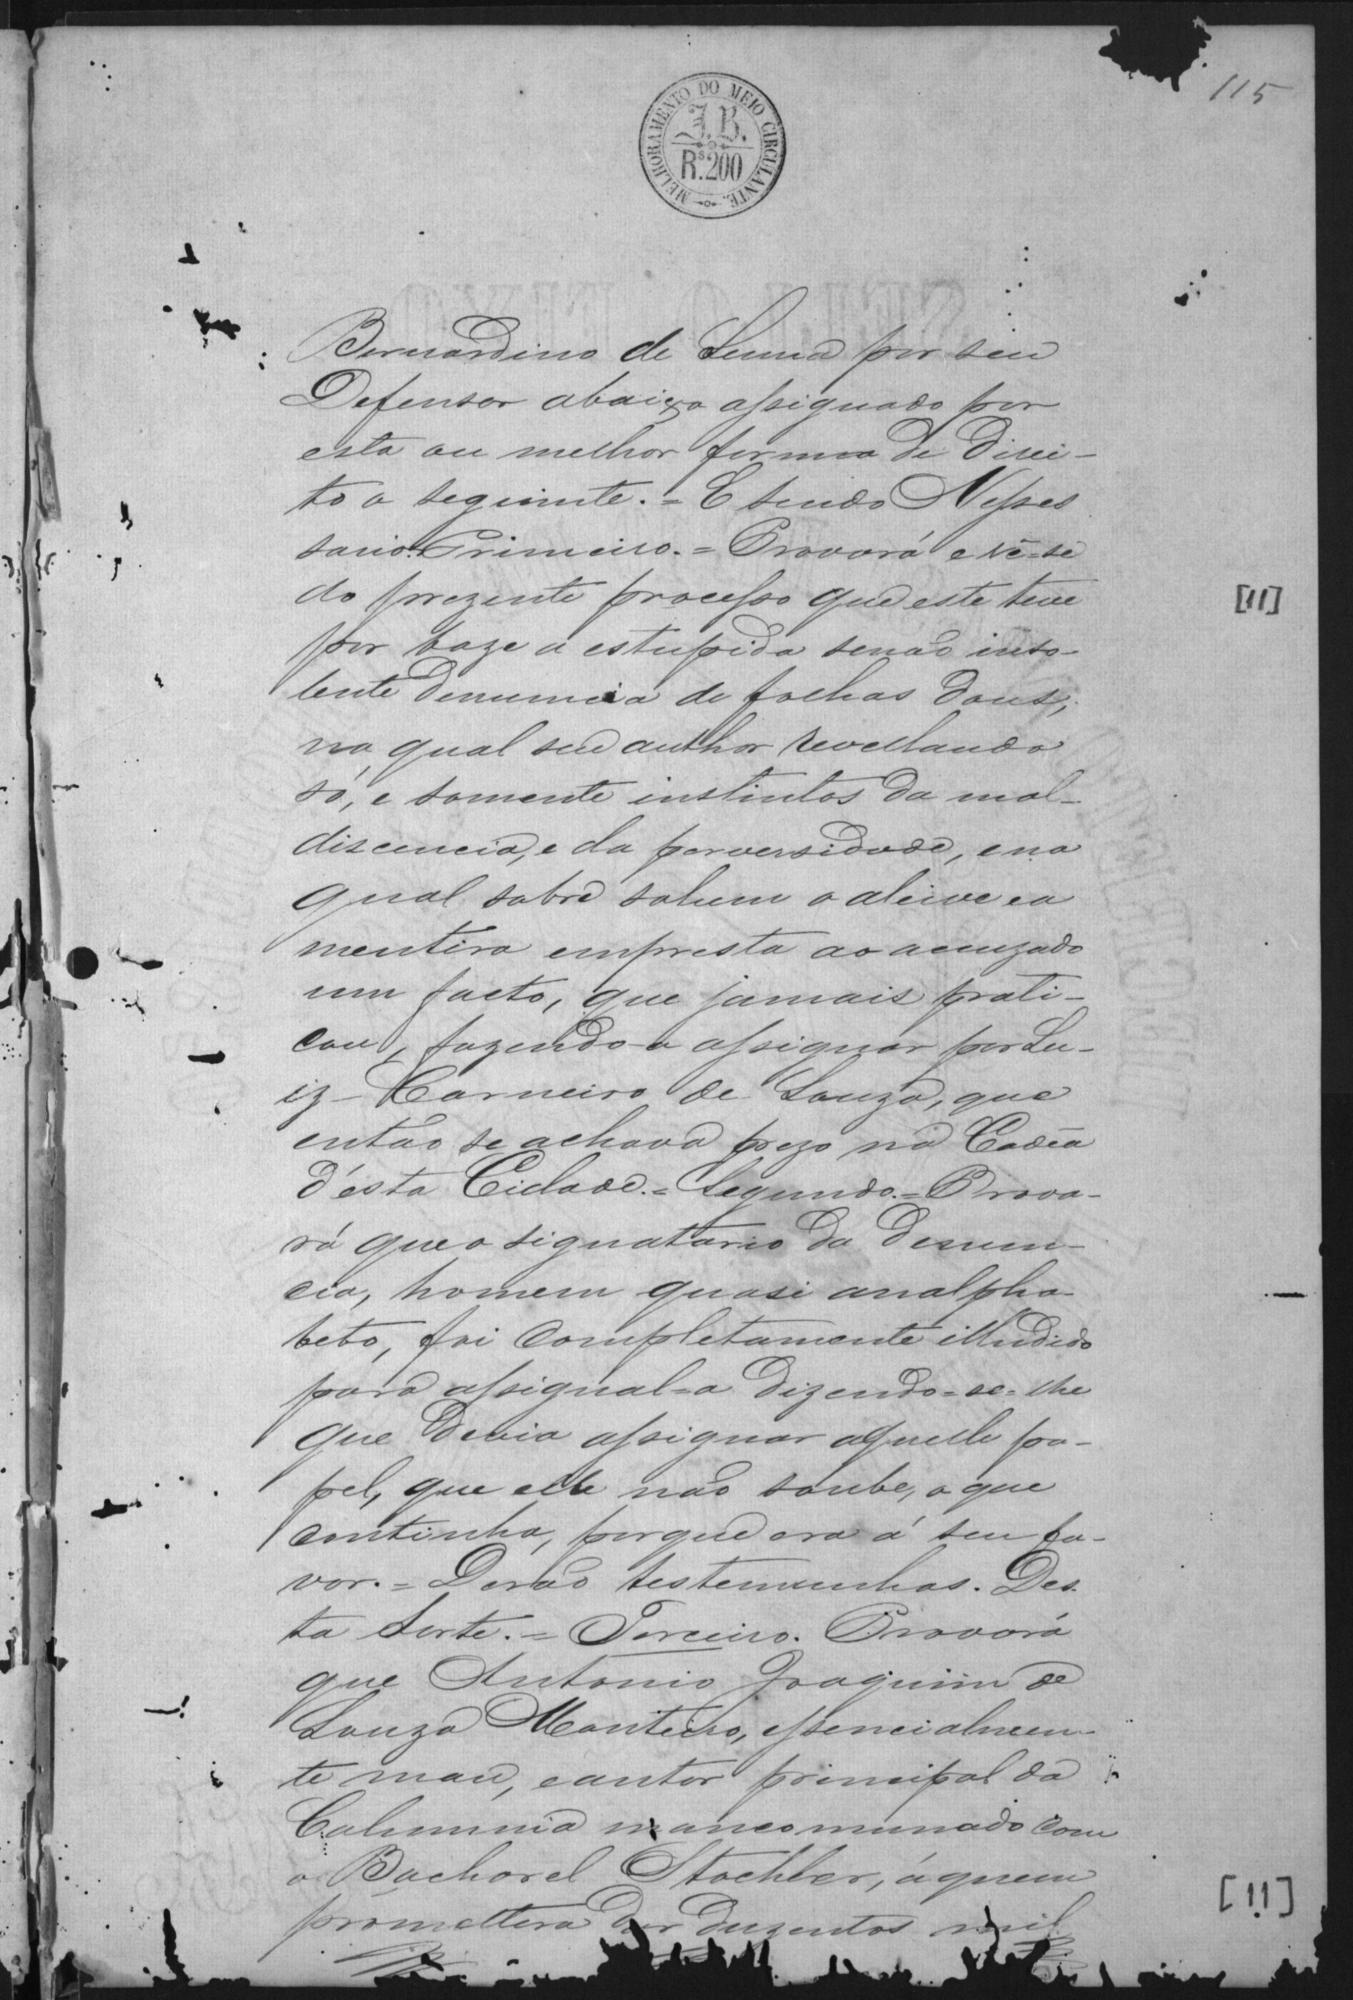 115
MELHORAMENTO DO MEIO CIRCULANTE
J.B.
Rs.200
Bernardino de Senna por seu
Defensor abaixo assignado por
esta ou melhor forma de Direi-
to o seguinte.= E sendo Nesses
sario. Primeiro.= Provará e vê-se
do prezente processo que este teve
por baze a estupida senão inso-
lente Denuncia de folhas dous,
na qual seu author revellando
só, e somente instintos da mal-
discencia, e da perversidade, e na
qual sobre sahem o aleive e a
mentira empresta ao acuzado
um facto, que jamais prati-
cou, fazendo-a assignar por Lu-
iz Carneiro de Souza, que
então se achava prezo na Cadêa
d'esta Cidade.= Segundo.= Prova-
rá que o signatario da Denun-
cia, homem quasi analpha-
beto, foi completamente illudido
para assignal-a dizendo=se=lhe
que devia assignar aquelle pa-
pel, que elle não soube, o que
continha, porque era á seu fa-
vor.= Derão testemunhas. Des
ta sorte.= Terceiro. Provará
que Antonio Joaquim de
Souza Monteiro, essencialmen-
te mau, e autor principal da
Calumnia mancomunado com
o Bacharel Stochler, á quem
promettera dar duzentos mil
[11]
[11]